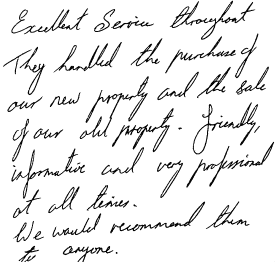 Excellent Service throughout
They handled the purchase of
our new property and the sale
of our old property. Friendly,
informative and very professional
at all times.
We would recommend them
to anyone.